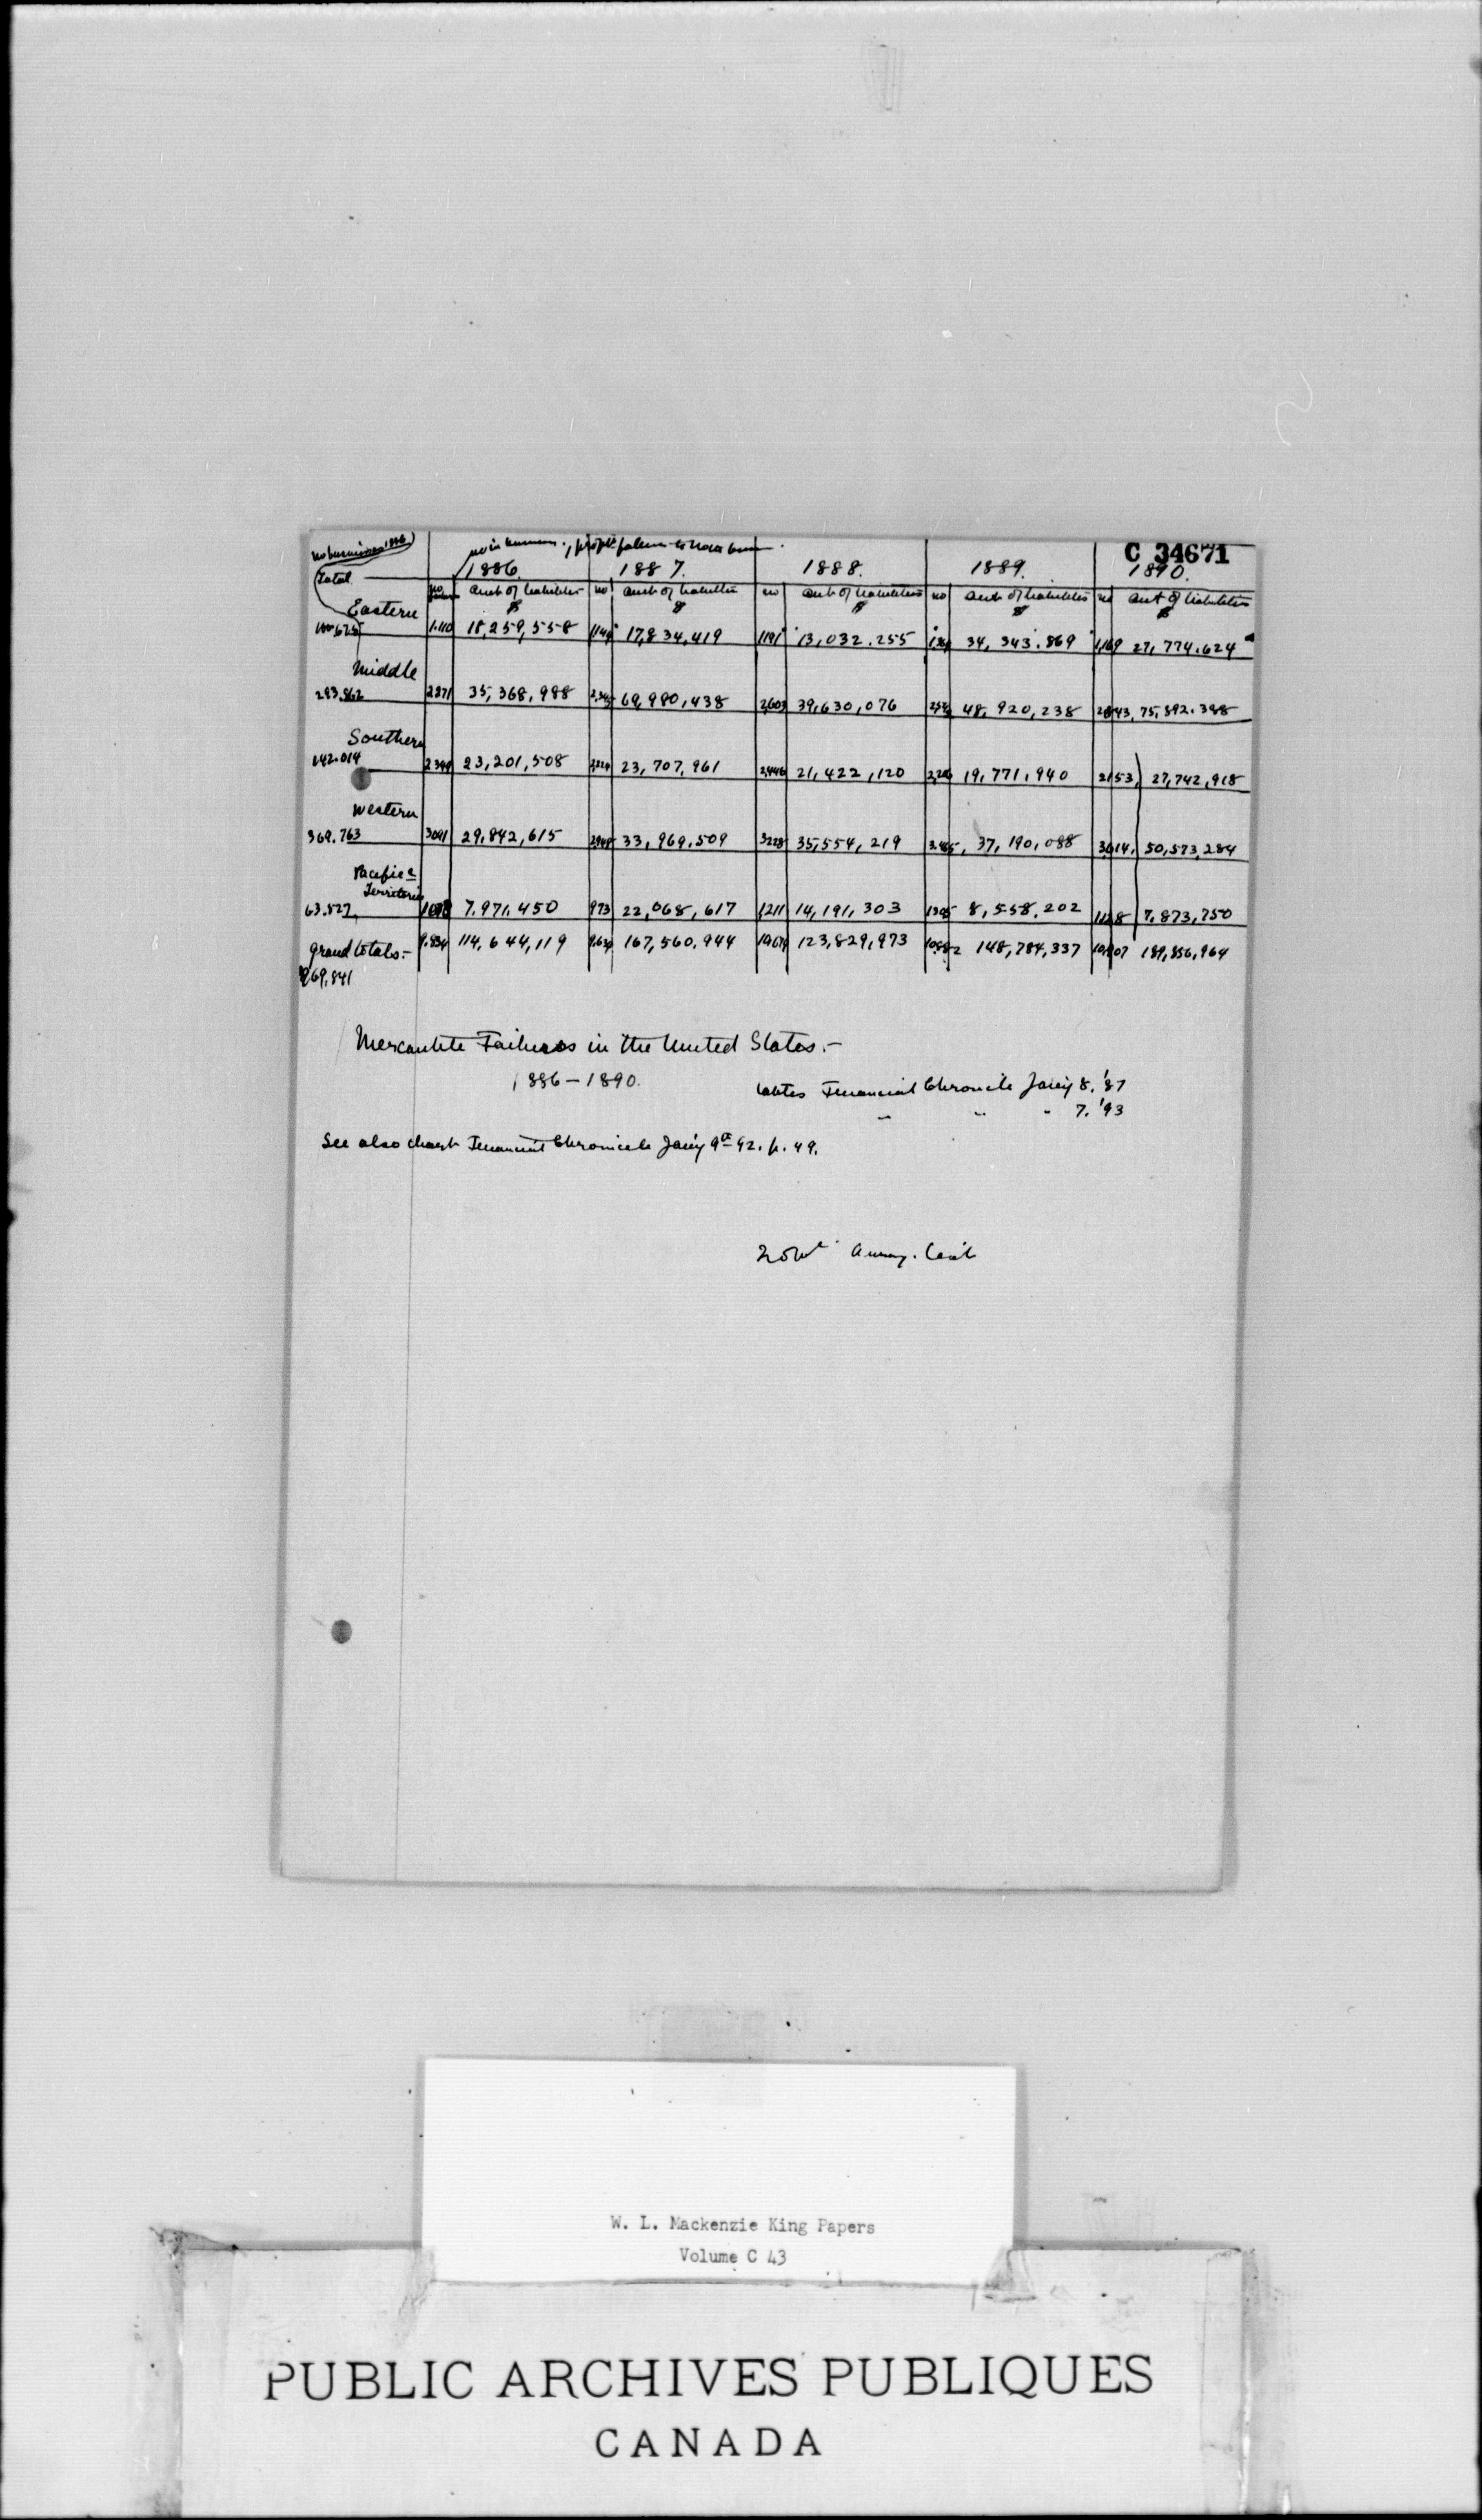 C 34671
no in business
1886. 1887. 1888. 1889. 1890.
Total
no amt of liabilities no amt of liabilities no amt of liabilities no amt of liabilities no amt of liabilities
$ $ $ $ $
Eastern
1.110 18,259,558 17,834,419 1191 13,032.255 34,343.869 1,169 27,774.624
Middle
283.862 2271 35,368,988 69,980,438 2,603 39,630,076 48,920,238 75,892.388
Southern
142.014 2349 23,201,508 23,707,961 2,446 21,422,120 19,771,940 2153, 27,742,918
Western
369.763 3091 29,842,615 33,969,509 3228 35,554,219 3,485, 37,190,088 3,614, 50,573,284
Pacific &
Territories
63.527. 7,971,450 973 22,068,617 1211 14,191,303 1395 8,558,202 1128 7,873,750
Grand totals:- 9.834 114,644,119 9,634 167,560,944 10,679 123,829,973 10,882 148,784,337 10,907 189,856,964
969,841
Mercantile Failures in the United States.-
1886-1890.
Financial Chronicle Jan'y 8. '87
" " " 7. '93
See also chart Financial Chronicle Jan'y 9th 92. p. 49.
W. L. Mackenzie King Papers
Volume C 43
PUBLIC ARCHIVES PUBLIQUES
CANADA